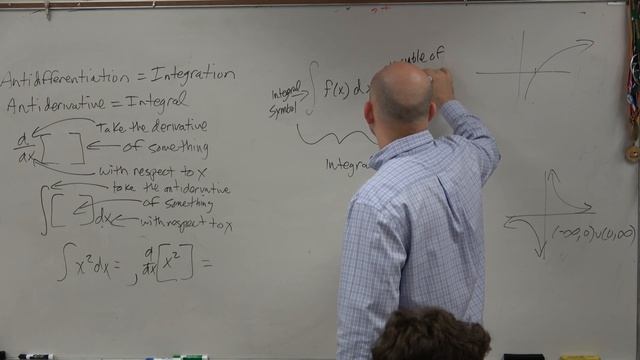 Antidifferentiation = Integration
Antiderivative = Integral
d/dx [ ] Take the derivative
of something
with respect to x
∫[ ]dx take the antiderivative
of something
with respect to x
∫x²dx = , d/dx[x²] =
Integral
Symbol
∫ f(x) dx
of
(-∞,0)∪(0,∞)